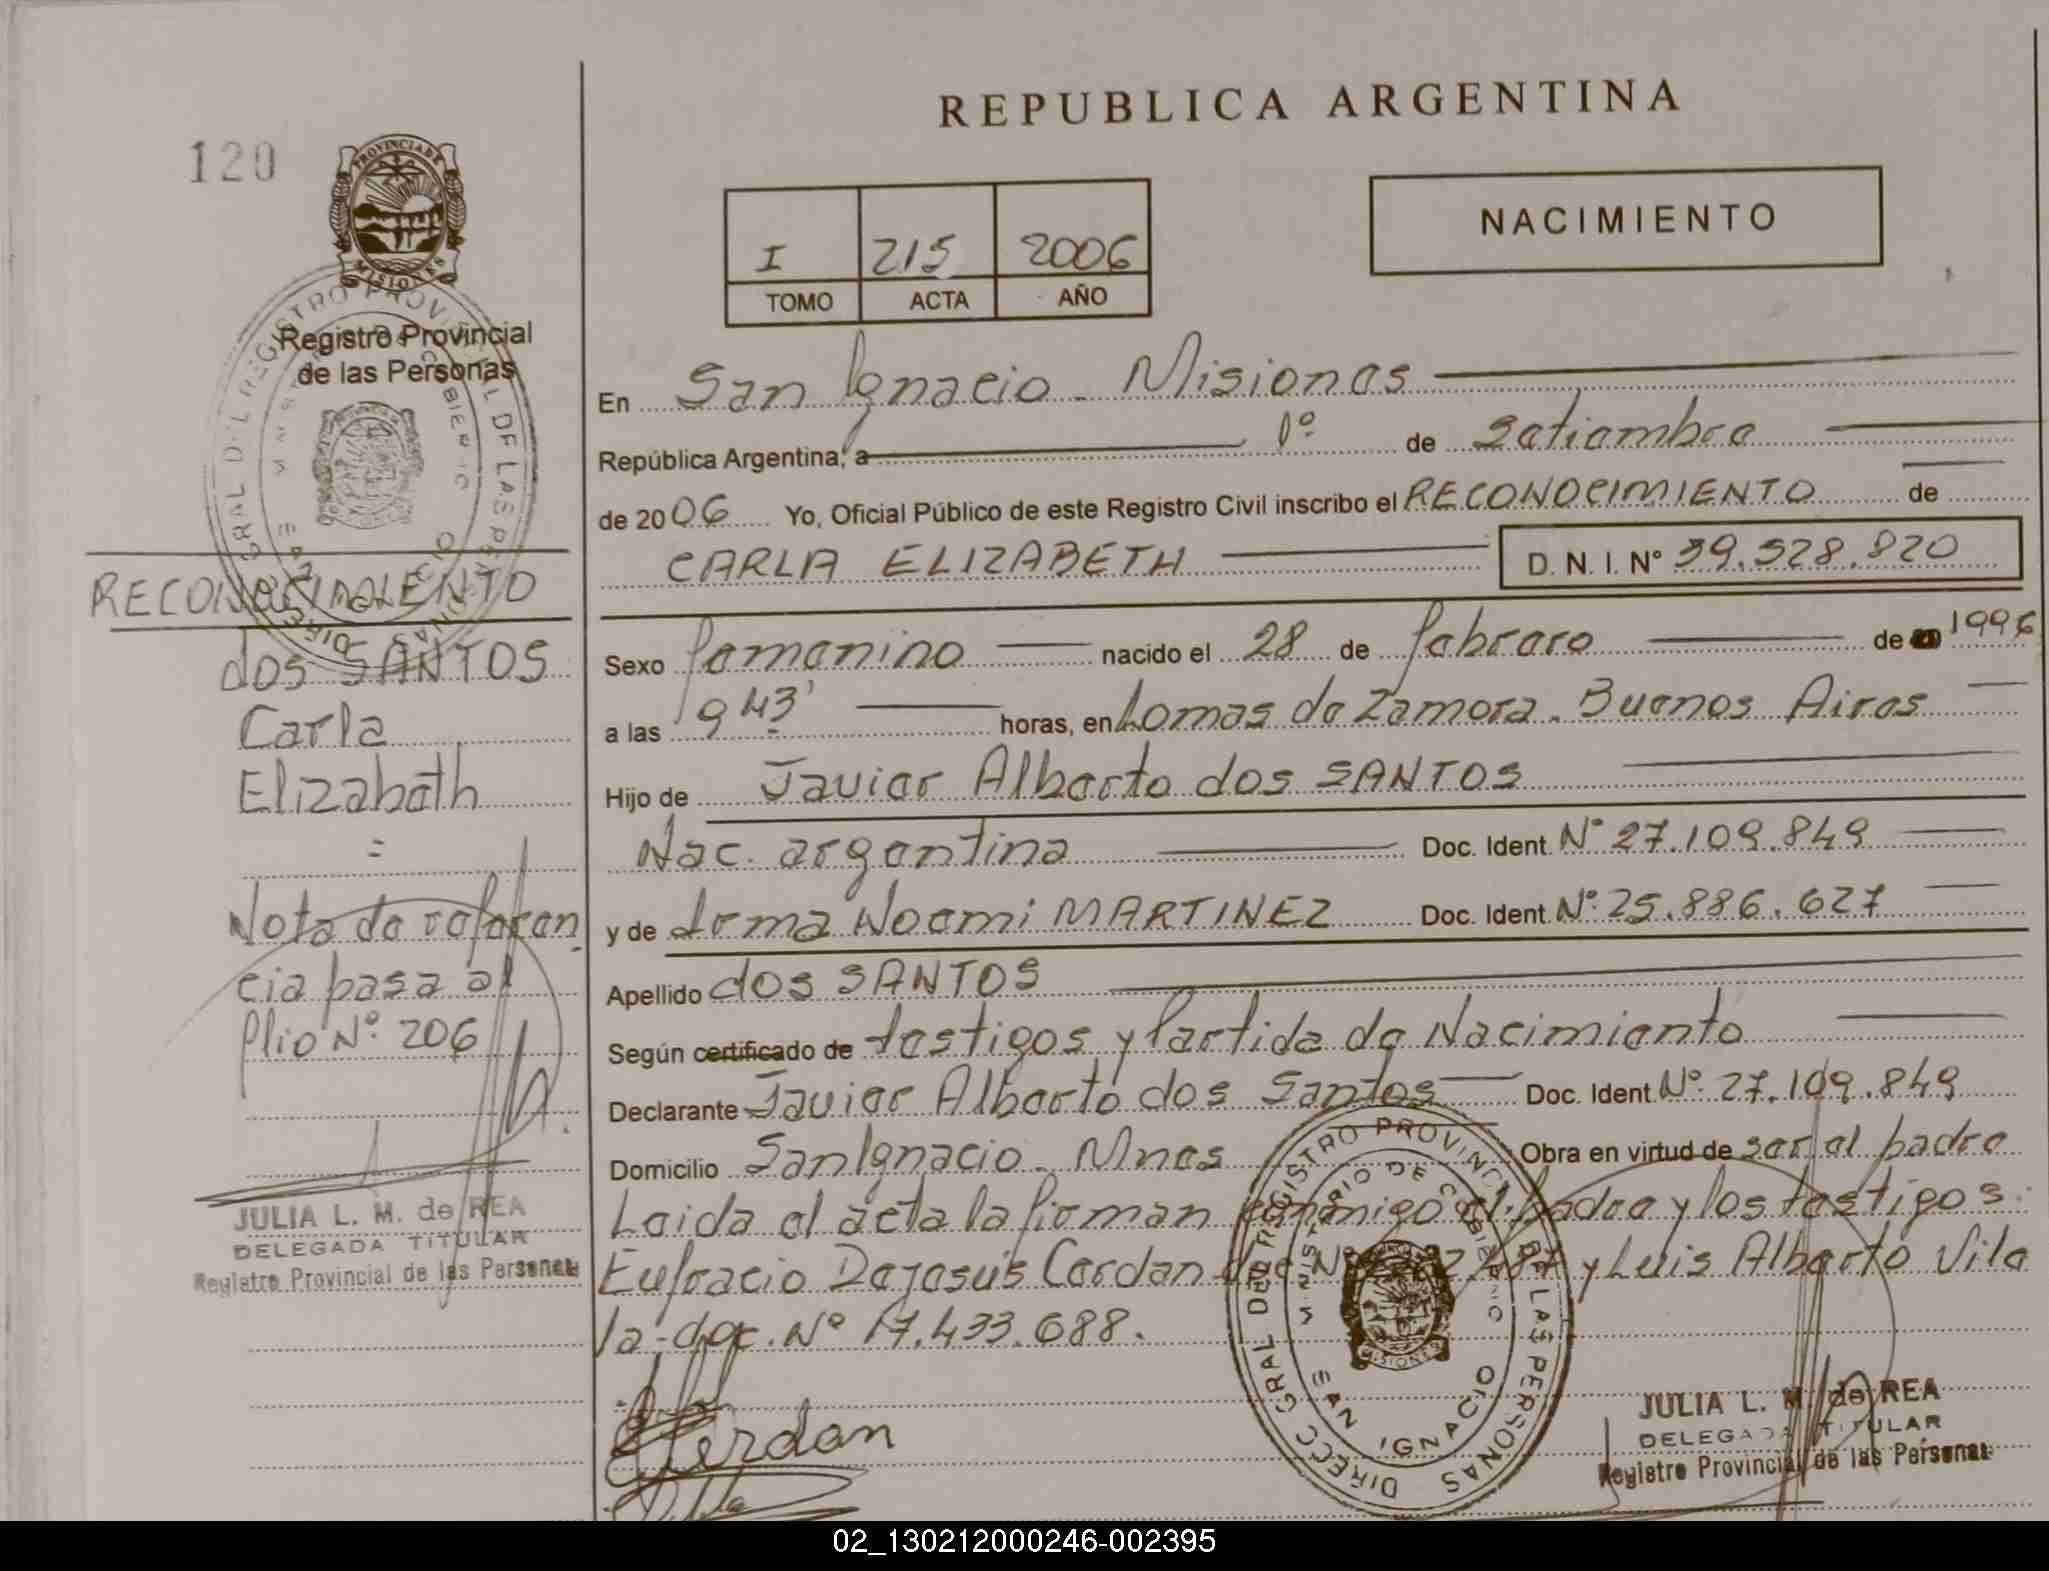 REPUBLICA ARGENTINA
120
PROVINCIA DE
MISIONES
NACIMIENTO
I 215 2006
TOMO ACTA AÑO
Registro Provincial
de las Personas
En San Ignacio - Misiones
República Argentina, a 1º de Setiembre
de 2006 Yo, Oficial Público de este Registro Civil inscribo el RECONOCIMIENTO de
CARLA ELIZABETH D. N. I. Nº 39.528.820
Sexo femenino nacido el 28 de febrero de 1996
a las 9 43' horas, en Lomas de Zamora. Buenos Aires
Hijo de Javier Alberto dos SANTOS
Nac. argentina Doc. Ident. Nº 27.109.849
y de Irma Noemi MARTINEZ Doc. Ident. Nº 25.886.627
Apellido dos SANTOS
Según certificado de testigos y Partida de Nacimiento
Declarante Javier Alberto dos Santos Doc. Ident Nº 27.109.849
Domicilio San Ignacio - Mnes Obra en virtud de ser el padre
Leida el acta la firman conmigo el padre y los testigos.
Eufracio Dejesús Cerdan y Luis Alberto Vile
la - doc. Nº 17.433.688.
Cerdan
RECONOCIMIENTO
dos SANTOS
Carla
Elizabeth
=
Nota de referen
cia pasa al
flio Nº 206
JULIA L. M. de REA
DELEGADA TITULAR
Registro Provincial de las Personas
DIRECC GRAL DEL REGISTRO PROVINCIAL DE LAS PERSONAS
MINISTERIO DE GOBIERNO
SAN IGNACIO
DIRECC GRAL DEL REGISTRO PROVINCIAL DE LAS PERSONAS
MINISTERIO DE GOBIERNO
SAN IGNACIO
MISIONES
JULIA L. M. de REA
DELEGADA TITULAR
Registro Provincial de las Personas
02_130212000246-002395